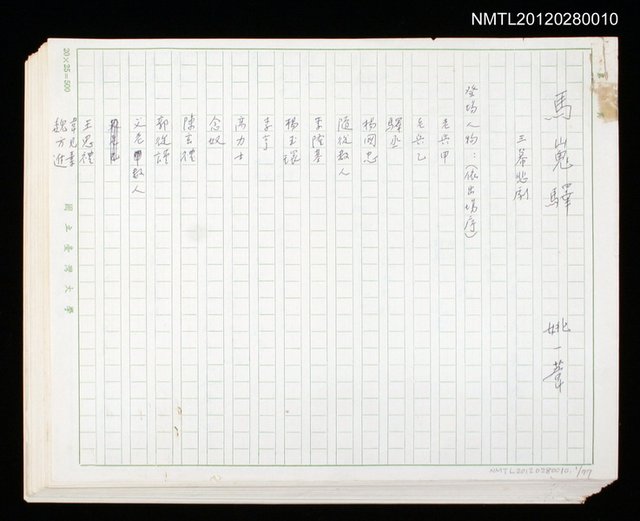 NMTL20120280010
馬嵬驛 姚一葦
三幕悲劇
登場人物：（依出場序）
老兵甲
老兵乙
驛丞
楊國忠
隨從數人
李隆基
楊玉環
李亨
高力士
念奴
陳玄禮
郭從謹
父老數人
王思禮
韋見素
魏方進
國立臺灣大學
20×25=500
NMTL20120280010. 1/77